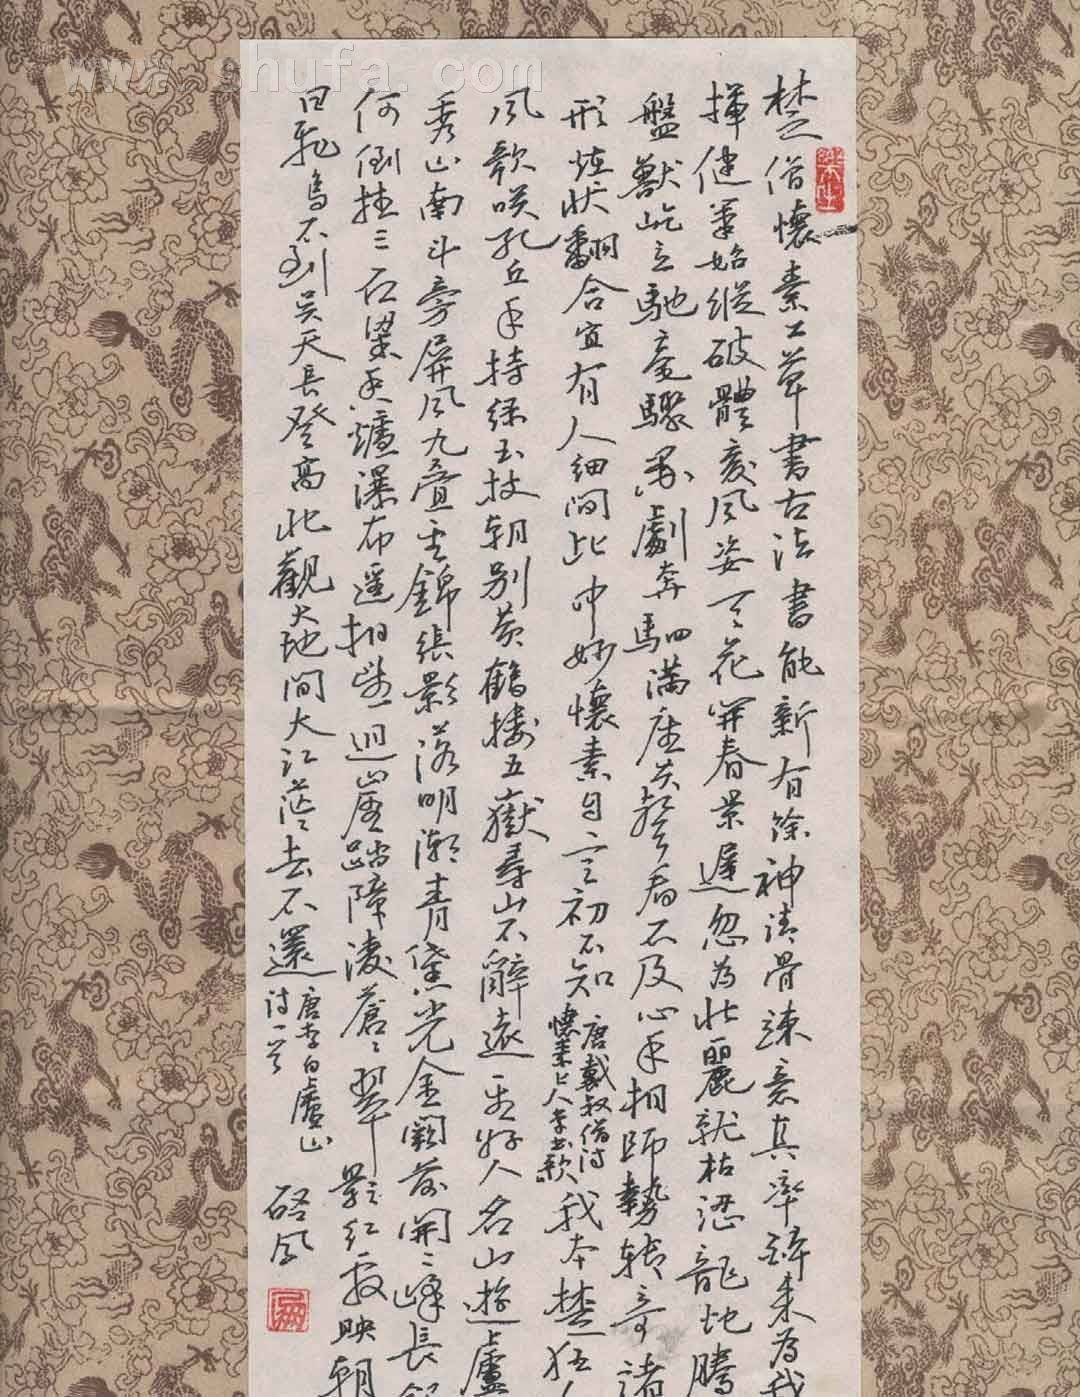 www.shufa.com
楚僧懷素工草書古法書能新有餘神清骨竦意真率醉來為我
揮健筆始縱破體變風姿一一花開春景遲忽為壯麗就枯澀龍蛇騰
盤獸屹立馳毫驟墨劇奔駟滿座失聲看不及心手相師勢轉奇詭
形怪狀翻合宜有人細問此中妙懷素自言初不知
唐戴叔倫詩
懷素上人草書歌
我本楚狂人
風歌笑孔丘手持綠玉杖朝別黃鶴樓五嶽尋山不辭遠一生好人名山遊廬
秀山南斗旁屏風九疊雲錦張影落明湖青黛光金闕前開二峰長銀
何倒挂三石梁香爐瀑布遙相望迴崖踏障凌蒼蒼翠影紅霞映朝
日飛鳥不到吳天長登高壯觀天地間大江茫茫去不還
唐李白廬山
詩一首